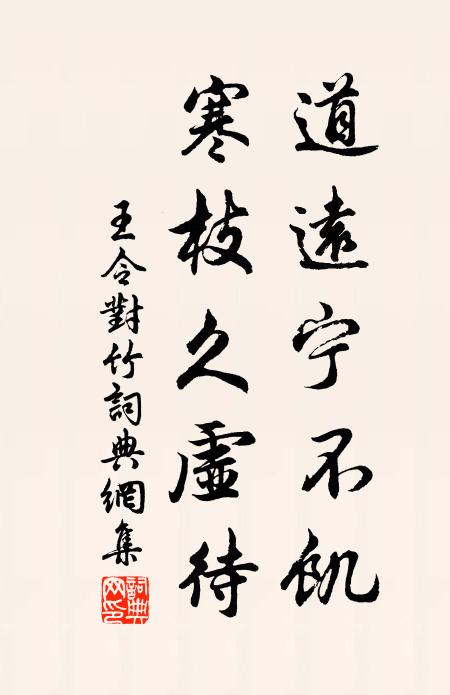 道遠宁不飢
寒枝久虛待
王令對竹詞典網集
詞典网印